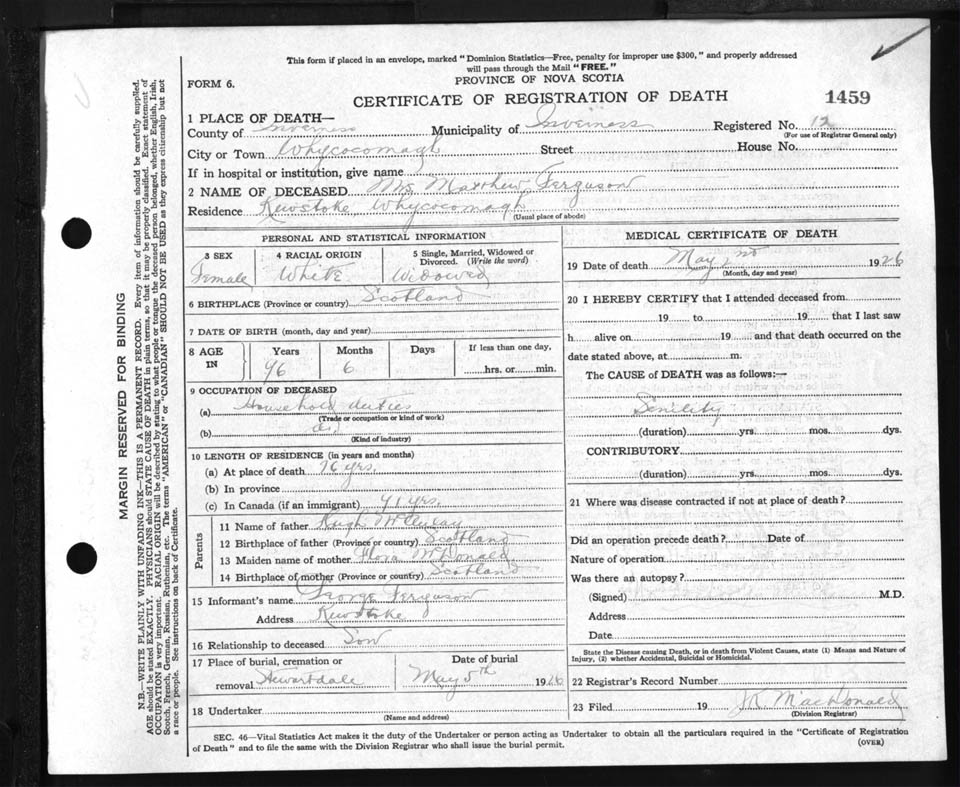 This form if placed in an envelope, marked "Dominion Statistics—Free, penalty for improper use $300," and properly addressed
will pass through the Mail "FREE."
FORM 6.
PROVINCE OF NOVA SCOTIA
CERTIFICATE OF REGISTRATION OF DEATH
1459
1 PLACE OF DEATH—
County of Inverness Municipality of Inverness Registered No. 12
(For use of Registrar General only)
City or Town Whycocomagh Street House No.
If in hospital or institution, give name
2 NAME OF DECEASED Mrs Matthew Ferguson
Residence Kewstoke Whycocomagh
(Usual place of abode)
PERSONAL AND STATISTICAL INFORMATION
3 SEX 4 RACIAL ORIGIN 5 Single, Married, Widowed or Divorced. (Write the word)
Female White Widowed
6 BIRTHPLACE (Province or country) Scotland
7 DATE OF BIRTH (month, day and year)
8 AGE IN Years Months Days If less than one day,
96 6 hrs. or min.
9 OCCUPATION OF DECEASED
(a) Household duties
(Trade or occupation or kind of work)
(b)
(Kind of industry)
10 LENGTH OF RESIDENCE (in years and months)
(a) At place of death 76 yrs.
(b) In province
(c) In Canada (if an immigrant) 91 yrs.
Parents
11 Name of father Hugh
12 Birthplace of father (Province or country) Scotland
13 Maiden name of mother Flora McDonald
14 Birthplace of mother (Province or country) Scotland
15 Informant's name George Ferguson
Address Kewstoke
16 Relationship to deceased Son
17 Place of burial, cremation or removal Stewartdale
Date of burial
May 5th 1926
18 Undertaker
(Name and address)
MEDICAL CERTIFICATE OF DEATH
19 Date of death May 2nd 1926
(Month, day and year)
20 I HEREBY CERTIFY that I attended deceased from
19 to 19 that I last saw
h alive on 19 and that death occurred on the
date stated above, at m.
The CAUSE of DEATH was as follows:—
Senility
(duration) yrs. mos. dys.
CONTRIBUTORY
(duration) yrs. mos. dys.
21 Where was disease contracted if not at place of death?
Did an operation precede death? Date of
Nature of operation
Was there an autopsy?
(Signed) M.D.
Address
Date
State the Disease causing Death, or in death from Violent Causes, state (1) Means and Nature of
Injury, (2) whether Accidental, Suicidal or Homicidal.
22 Registrar's Record Number
23 Filed 19 J.K. MacDonald
(Division Registrar)
SEC. 46—Vital Statistics Act makes it the duty of the Undertaker or person acting as Undertaker to obtain all the particulars required in the "Certificate of Registration
of Death" and to file the same with the Division Registrar who shall issue the burial permit.
(OVER)
MARGIN RESERVED FOR BINDING
N.B.—WRITE PLAINLY WITH UNFADING INK—THIS IS A PERMANENT RECORD. Every item of information should be carefully supplied.
AGE should be stated EXACTLY. PHYSICIANS should STATE CAUSE OF DEATH in plain terms, so that it may be properly classified. Exact statement of
OCCUPATION is very important. RACIAL ORIGIN will be described by stating to what people or tongue the deceased person belonged, whether English, Irish,
Scotch, French, German, Russian, Ruthenian, etc. The terms "AMERICAN" or "CANADIAN" SHOULD NOT BE USED as they express citizenship but not
a race or people. See instructions on back of Certificate.